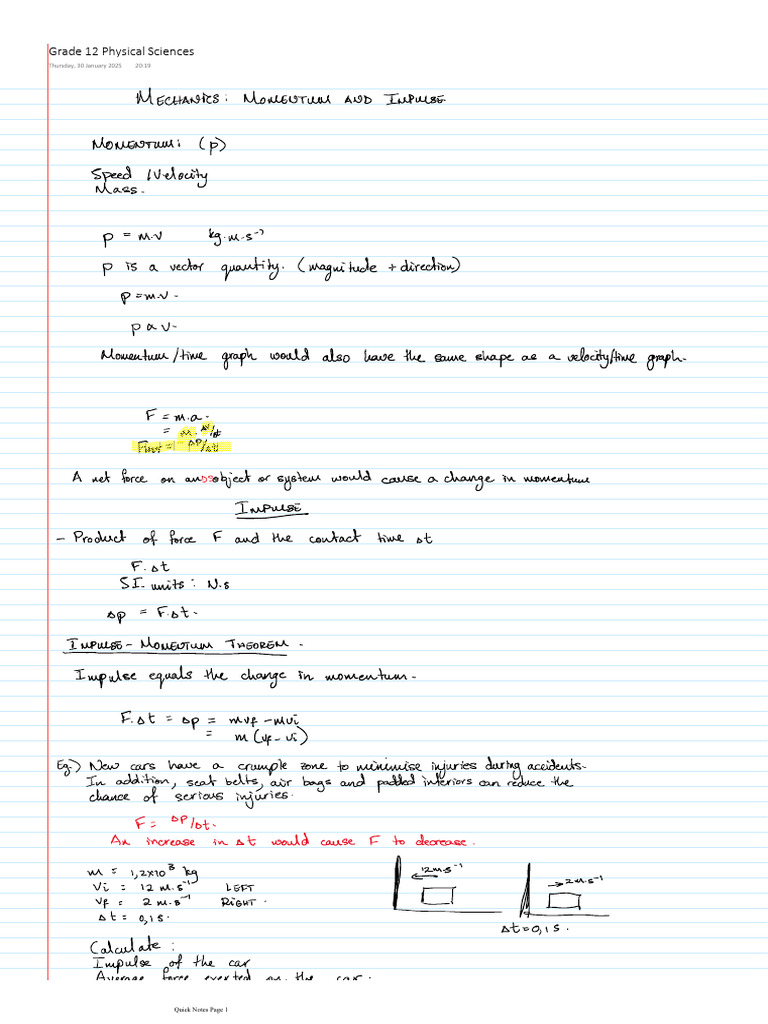 Grade 12 Physical Sciences
Thursday, 30 January 2025 20:19
MECHANICS: MOMENTUM AND IMPULSE
MOMENTUM: (p)
Speed /Velocity
Mass.
p = m.v kg.m.s⁻¹
p is a vector quantity. (magnitude + direction)
p = m.v.
p ∝ v.
Momentum/time graph would also have the same shape as a velocity/time graph.
F = m.a.
= m. Δv/Δt
Fnet = Δp/Δt
A net force on an object or system would cause a change in momentum
IMPULSE
- Product of force F and the contact time Δt
F.Δt
SI. units: N.s
Δp = F.Δt.
IMPULSE - MOMENTUM THEOREM.
Impulse equals the change in momentum.
F.Δt = Δp = mvf - mvi
= m (vf - vi)
Eg:) New cars have a crumple zone to minimise injuries during accidents.
In addition, seat belts, air bags and padded interiors can reduce the
chance of serious injuries.
F = Δp/Δt.
An increase in Δt would cause F to decrease.
m = 1,2x10³ kg
Vi = 12 m.s⁻¹ LEFT
Vf = 2 m.s⁻¹ RIGHT.
Δt = 0,1s.
12m.s⁻¹
2m.s⁻¹
Δt=0,1s.
Calculate:
Impulse of the car
Average force exerted on the car.
Quick Notes Page 1